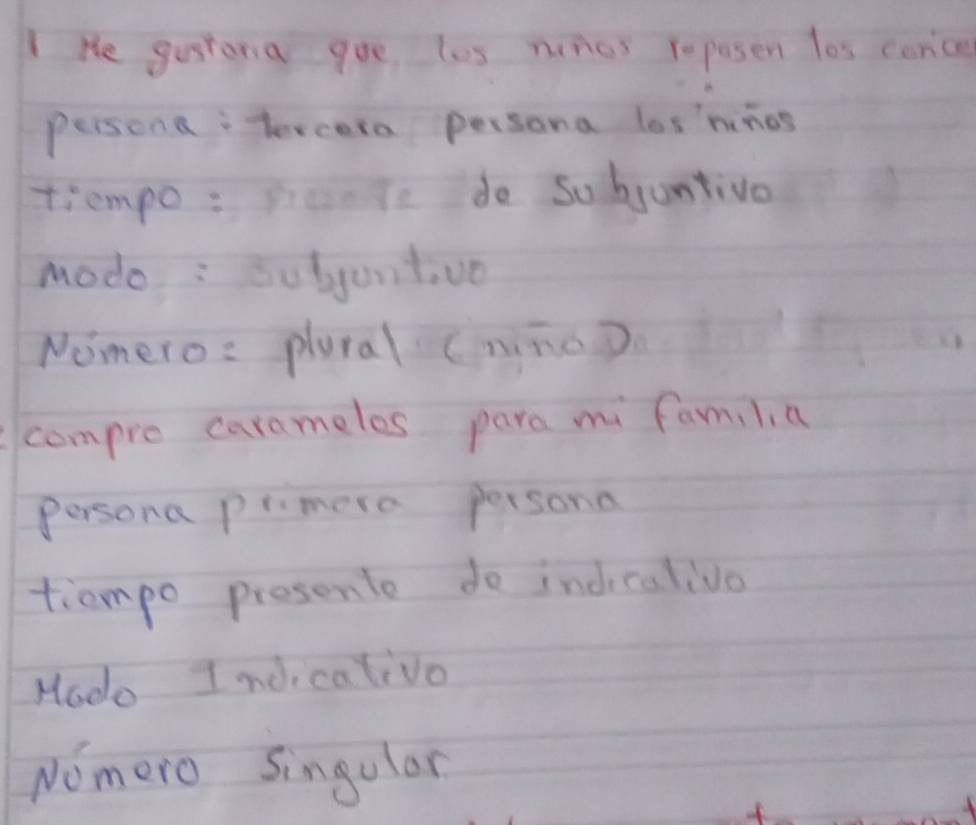 1 Me gustaria que los niños reposen los
persona: tercera persona los niños
tiempo: de subjuntivo
modo: subjuntivo
Número: plural (niño)
compro caramelos para mi familia
persona primera persona
tiempo presente de indicativo
Modo Indicativo
Número Singular